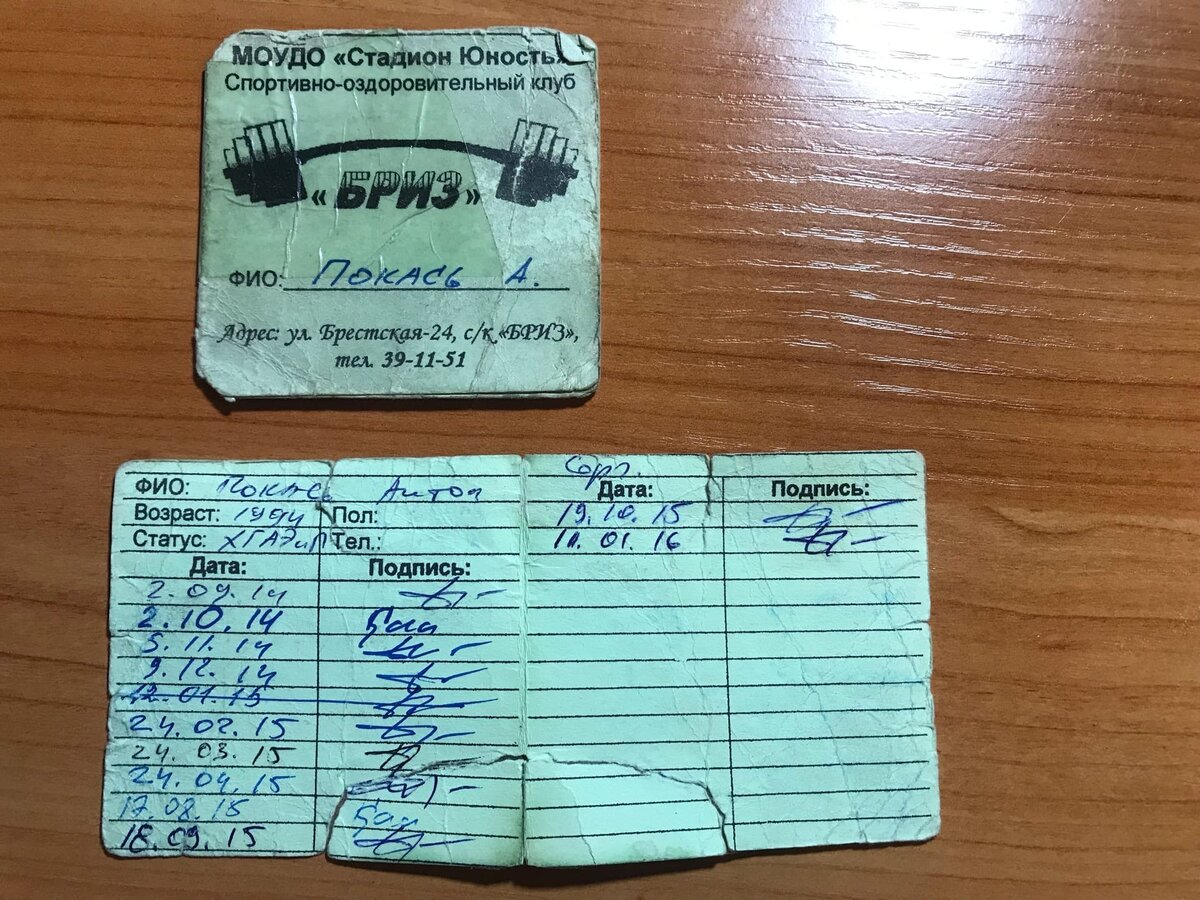 МОУДО «Стадион Юность»
Спортивно-оздоровительный клуб
«БРИЗ»
ФИО: Покась А.
Адрес: ул. Брестская-24, с/к «БРИЗ»,
тел. 39-11-51
ФИО: Покась Антон
Возраст: 1994 Пол:
Статус: ХГАЭиП Тел.:
Дата: Подпись:
2.09.14
2.10.14
5.11.14
9.12.14
12.01.15
24.02.15
24.03.15
24.04.15
17.08.15
18.09.15
Дата: Подпись:
19.10.15
11.01.16